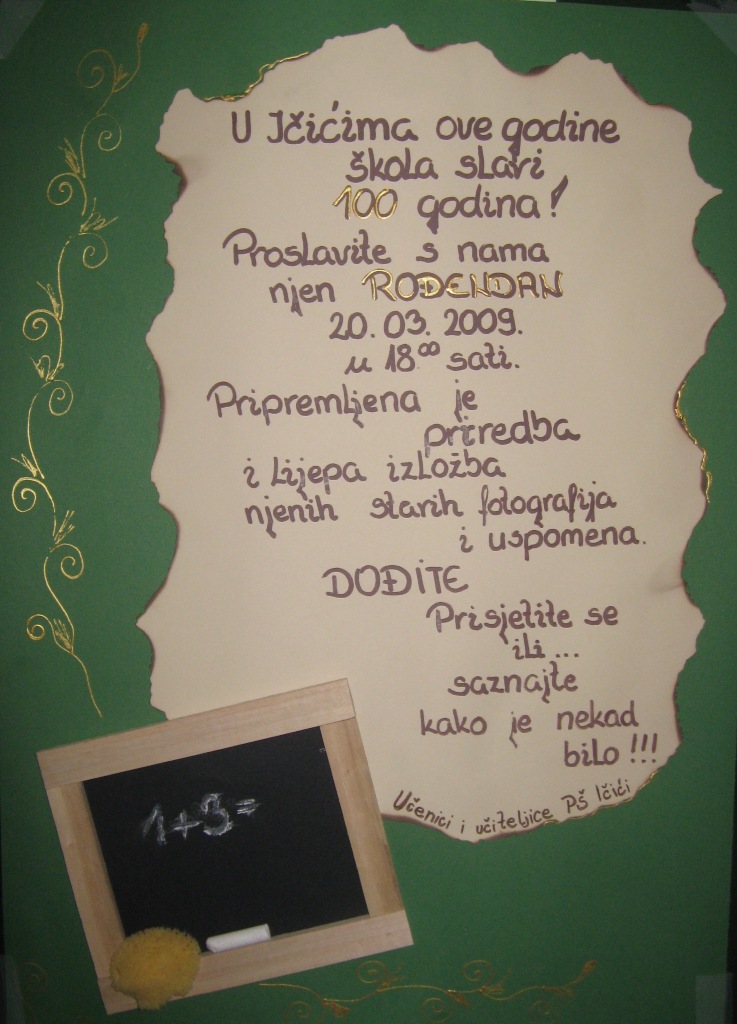 U Ičićima ove godine
škola slavi
100 godina!
Proslavite s nama
njen ROĐENDAN
20. 03. 2009.
u 18⁰⁰ sati.
Pripremljena je
priredba
i lijepa izložba
njenih starih fotografija
i uspomena.
DOĐITE
Prisjetite se
ili...
saznajte
kako je nekad
bilo!!!
Učenici i učiteljice PŠ Ičići
1+3=